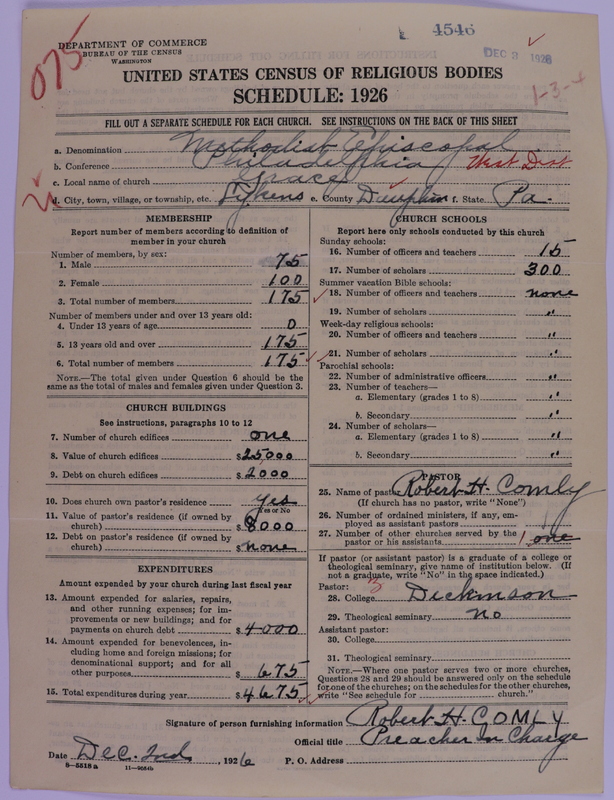 4546
DEPARTMENT OF COMMERCE
BUREAU OF THE CENSUS
WASHINGTON
DEC 3 1926
075
UNITED STATES CENSUS OF RELIGIOUS BODIES
SCHEDULE: 1926
1-3-4
FILL OUT A SEPARATE SCHEDULE FOR EACH CHURCH. SEE INSTRUCTIONS ON THE BACK OF THIS SHEET
a. Denomination Methodist Episcopal
b. Conference Philadelphia West Dist
c. Local name of church Grace
d. City, town, village, or township, etc. Lykens e. County Dauphin f. State Pa.
MEMBERSHIP
Report number of members according to definition of member in your church
Number of members, by sex:
1. Male 75
2. Female 100
3. Total number of members 175
Number of members under and over 13 years old:
4. Under 13 years of age 0
5. 13 years old and over 175
6. Total number of members 175
NOTE.—The total given under Question 6 should be the same as the total of males and females given under Question 3.
CHURCH BUILDINGS
See instructions, paragraphs 10 to 12
7. Number of church edifices one
8. Value of church edifices $25000
9. Debt on church edifices $2000
10. Does church own pastor's residence Yes
Yes or No
11. Value of pastor's residence (if owned by church) $8000
12. Debt on pastor's residence (if owned by church) $none
EXPENDITURES
Amount expended by your church during last fiscal year
13. Amount expended for salaries, repairs, and other running expenses; for improvements or new building; and for payments on church debt $4000
14. Amount expended for benevolences, including home and foreign missions; for denominational support; and for all other purposes $675
15. Total expenditures during year $4675
CHURCH SCHOOLS
Report here only schools conducted by this church
Sunday schools:
16. Number of officers and teachers 15
17. Number of scholars 300
Summer vacation Bible schools:
18. Number of officers and teachers none
19. Number of scholars "
Week-day religious schools:
20. Number of officers and teachers "
21. Number of scholars "
Parochial schools:
22. Number of administrative officers "
23. Number of teachers—
a. Elementary (grades 1 to 8) "
b. Secondary "
24. Number of scholars—
a. Elementary (grades 1 to 8) "
b. Secondary "
PASTOR
25. Name of pastor Robert H. Comly
(If church has no pastor, write "None")
26. Number of ordained ministers, if any, employed as assistant pastors "
27. Number of other churches served by the pastor or his assistants 1 one
If pastor (or assistant pastor) is a graduate of a college or theological seminary, give name of institution below. (If not a graduate, write "No" in the space indicated.)
Pastor:
28. College Dickinson
29. Theological seminary No
Assistant pastor:
30. College
31. Theological seminary
NOTE.—Where one pastor serves two or more churches, Questions 28 and 29 should be answered only on the schedule for one of the churches; on the schedules for the other churches, write "See schedule for church."
Signature of person furnishing information Robert H. COMLY
Official title Preacher In Charge
Date Dec. 2nd, 1926 P. O. Address
8-5518a 11-9554b